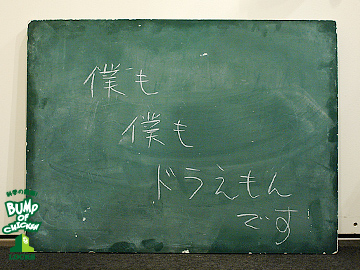 僕も
僕も
ドラえもん
です
BUMP
OF
CHICKEN